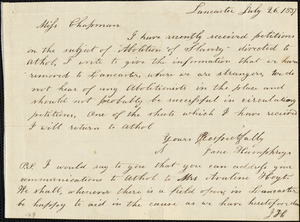 Lancaster July 26, 1837
Miss Chapman
I have recently received petitions
on the subject of Abolition of Slavery directed to
Athol, I write to give the information that we have
removed to Lancaster, where we are strangers, we do
not hear of any Abolitionists in the place and
should not probably be successful in circulating
petitions, One of the sheets which I have received
I will return to Athol
Yours Respectfully
Jane Humphreys
P.S. I would say to you that you can address your
communications to Athol to Mrs Hoyt
We shall, whenever there is a field open in Lancaster
be happy to aid in the cause as we have heretofore done
J H